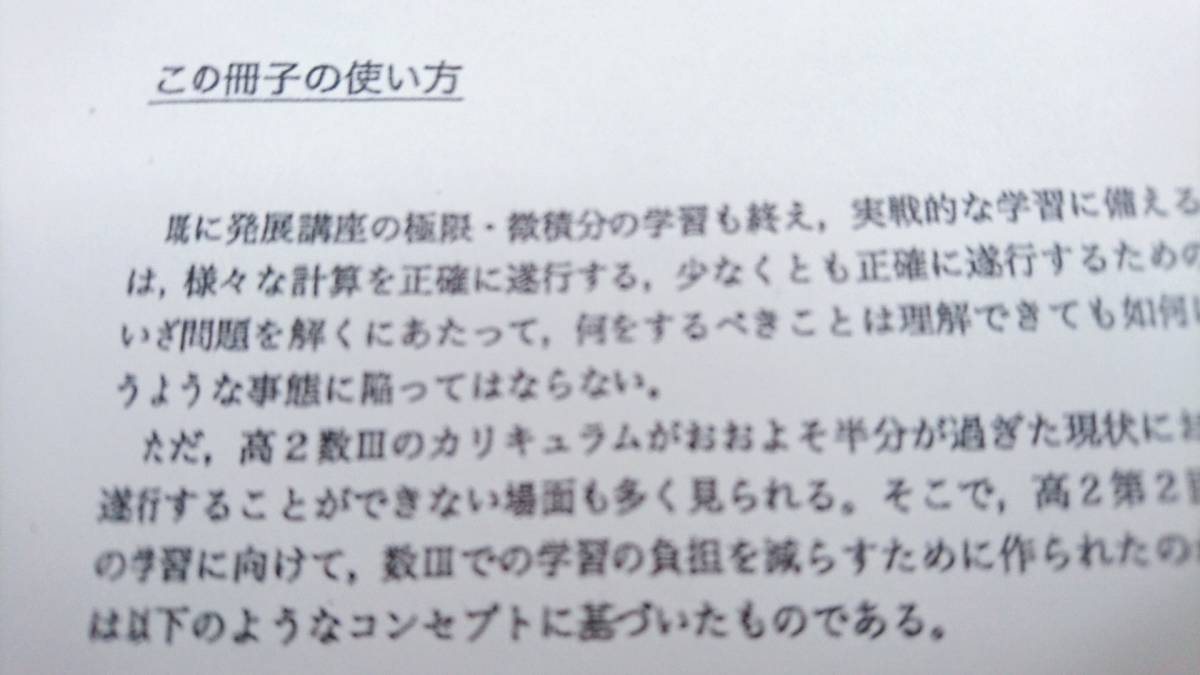 この冊子の使い方
既に発展講座の極限・微積分の学習も終え，実戦的な学習に備える
は，様々な計算を正確に遂行する，少なくとも正確に遂行するための
いざ問題を解くにあたって，何をするべきことは理解できても如何
うような事態に陥ってはならない。
ただ，高２数Ⅲのカリキュラムがおおよそ半分が過ぎた現状に
遂行することができない場面も多く見られる。そこで，高２第２
の学習に向けて，数Ⅲでの学習の負担を減らすために作られたの
は以下のようなコンセプトに基づいたものである。